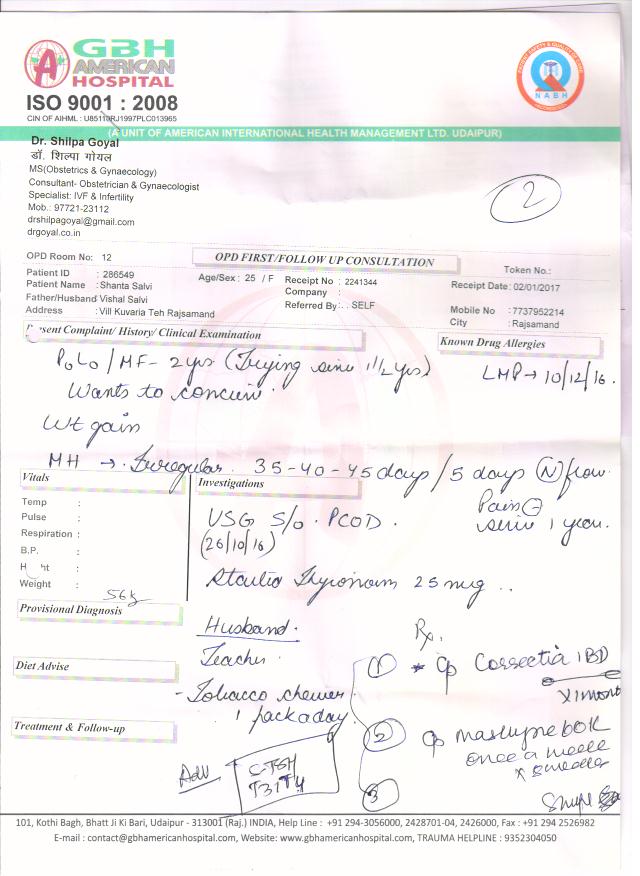 GBH
AMERICAN
HOSPITAL
NABH
ISO 9001 : 2008
CIN OF AIHML : U85110RJ1997PLC013965
(A UNIT OF AMERICAN INTERNATIONAL HEALTH MANAGEMENT LTD. UDAIPUR)
Dr. Shilpa Goyal
डॉ. शिल्पा गोयल
MS(Obstetrics & Gynaecology)
Consultant- Obstetrician & Gynaecologist
Specialist: IVF & Infertility
Mob.: 97721-23112
drshilpagoyal@gmail.com
drgoyal.co.in
2
OPD Room No: 12
OPD FIRST/FOLLOW UP CONSULTATION
Token No.:
Patient ID : 286549
Age/Sex : 25 / F
Receipt No : 2241344
Receipt Date : 02/01/2017
Patient Name : Shanta Salvi
Company :
Father/Husband Vishal Salvi
Referred By : . SELF
Mobile No : 7737952214
Address : Vill Kuvaria Teh Rajsamand
City : Rajsamand
esent Complaint/ History/ Clinical Examination
Known Drug Allergies
P0L0 / MF - 2 yrs (Trying since 1 1/2 yrs)
LMP → 10/12/16.
Wants to conceive.
Wt gain
MH → Irregular. 35-40-45 days / 5 days (N) flow.
Pain
since 1 year.
Vitals
Temp :
Pulse :
Respiration :
B.P. :
H ht :
Weight : 56k
Provisional Diagnosis
Diet Advise
Treatment & Follow-up
Investigations
USG S/o. PCOD.
(26/10/16)
Thyronorm 25 mcg ..
Husband.
Teacher
- Tobacco chewer.
1 pack a day
Adv
S-TSH
T3 / T4
Rx,
1 * Cp 1 BD
x 1 mont
2 Cp 60K
once a week
x 8 weeks
3
101, Kothi Bagh, Bhatt Ji Ki Bari, Udaipur - 313001 (Raj.) INDIA, Help Line : +91 294-3056000, 2428701-04, 2426000, Fax : +91 294 2526982
E-mail : contact@gbhamericanhospital.com, Website: www.gbhamericanhospital.com, TRAUMA HELPLINE : 9352304050